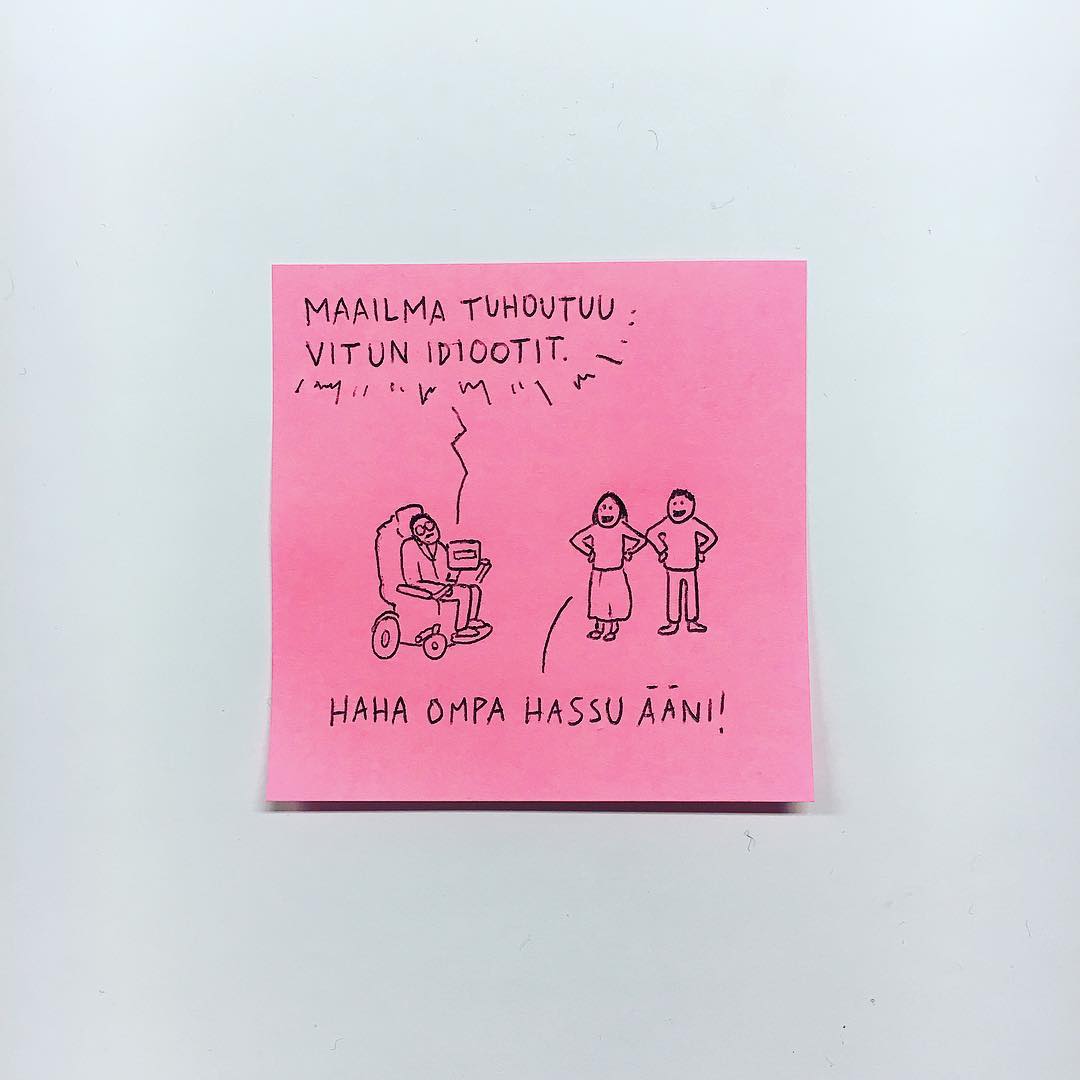 MAAILMA TUHOUTUU
VITUN IDIOOTIT.
HAHA OMPA HASSU ÄÄNI!